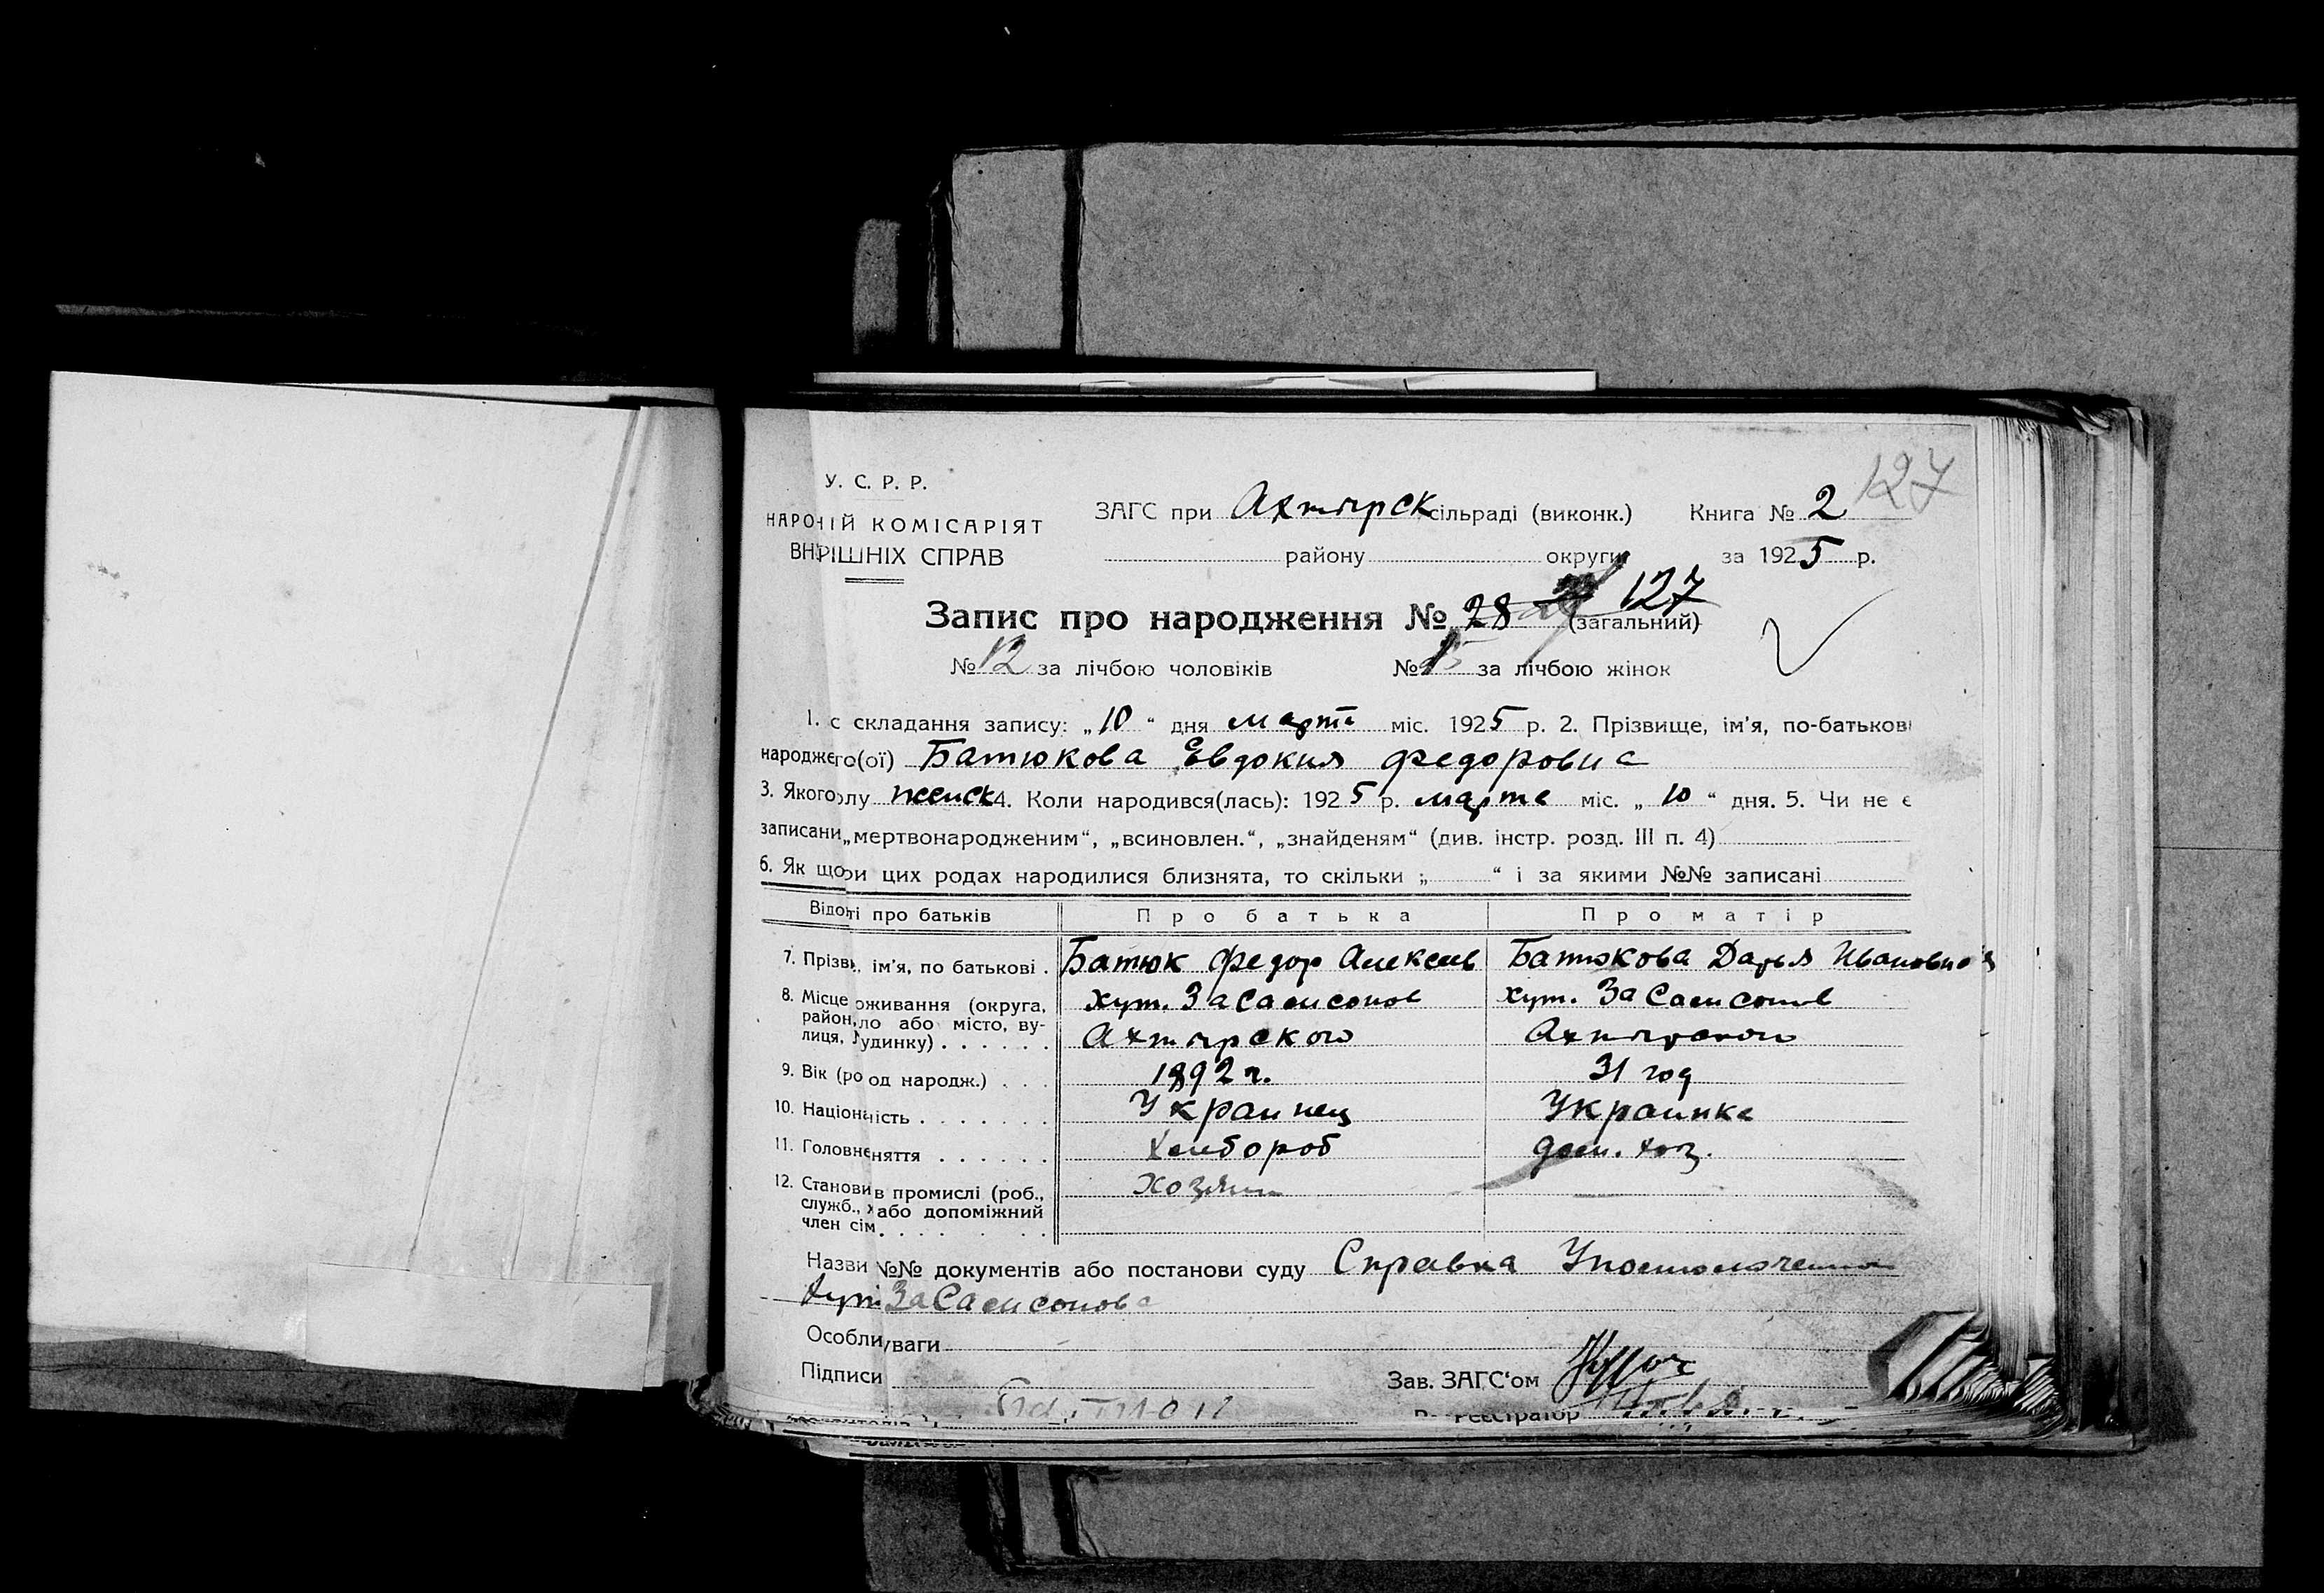 127
У. С. Р. Р.
НАРО ІЙ КОМІСАРІЯТ
ВН РІШНІХ СПРАВ
ЗАГС при Ахтырск сільраді (виконк.) Книга № 2
району округи за 1925 р.
Запис про народження № 28 127 (загальний)
№ 12 за лічбою чоловіків № за лічбою жінок
1. с складання запису: „10“ дня марта міс. 1925 р. 2. Прізвище, ім'я, по-батькові
народже го(ої) Батюкова Евдокия Федоровна
3. Якого олу женск 4. Коли народився(лась): 1925 р. марта міс. „10“ дня. 5. Чи не є
записани „мертвонародженим“, „всиновлен.“, „знайденям“ (див. інстр. розд. III п. 4)
6. Як що ри цих родах народилися близнята, то скільки „ “ і за якими №№ записані
Відо ті про батьків Про батька Про матір
7. Прізв ім'я, по батькові . Батюк Федор Алексеев Батюкова Дарья Ивановна
8. Місце оживання (округа, хут. ЗаСамсонов хут. ЗаСамсонов
район, ло або місто, ву-
лиця, удинку) . . . . . . Ахтырского Ахтырского
9. Вік (ро од народж.) . . . 1892 г. 31 год
10. Націон ність . . . . . . . Украинец Украинка
11. Головне няття . . . . . . Хлебороб дом. хоз.
12. Станови в промислі (роб., Хозяин
служб., х або допоміжний
член сім . . . . . . .
Назви №№ документів або постанови суду Справка Уполномоченного
хут. ЗаСамсонова
Особли уваги
Підписи Зав. ЗАГС'ом
Батюк Реєстратор